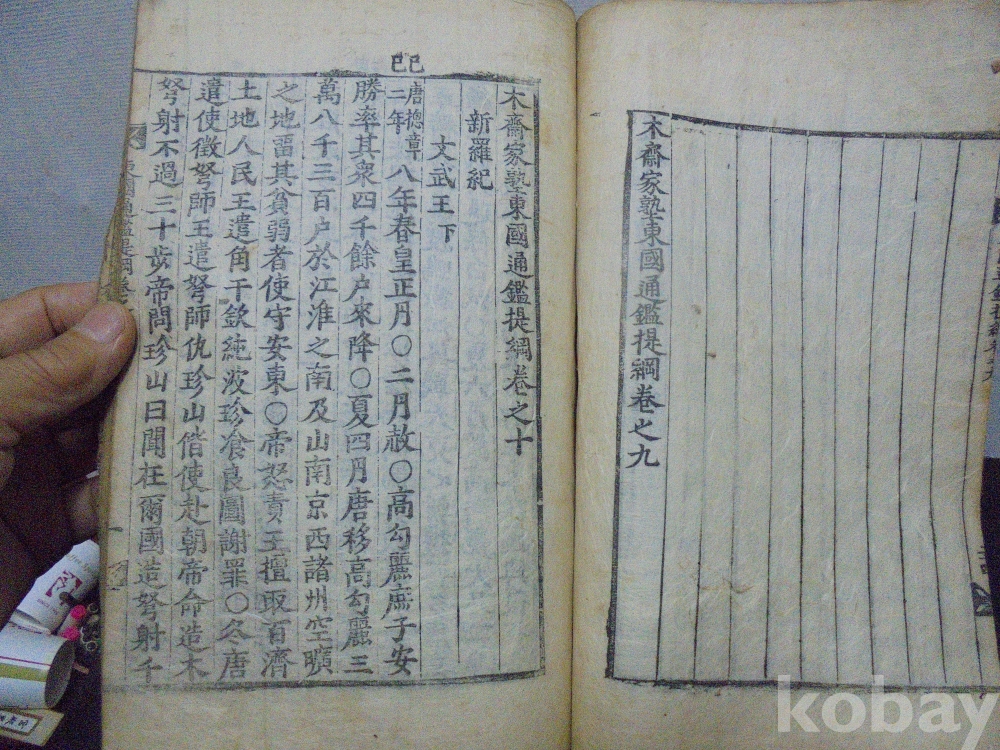 木齋家塾東國通鑑提綱卷之九
木齋家塾東國通鑑提綱卷之十
新羅紀
文武王下
己巳
唐摠章二年
八年春皇正月○二月赦○高勾麗庶子安
勝率其衆四千餘户來降○夏四月唐移高勾麗三
萬八千三百户於江淮之南及山南京西諸州空曠
之地畱其貧弱者使守安東○帝怒責王擅取百濟
土地人民王遣角干欽純波珍飡良圖謝罪○冬唐
遣使徵弩師王遣弩師仇珍山偕使赴朝帝命造木
弩射不過三十步帝問珍山曰聞在爾國造弩射千
東國通鑑提綱卷
kobay